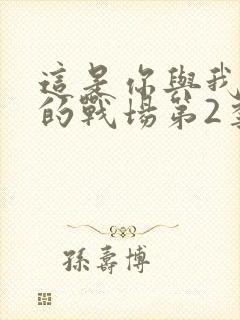 這是你與我
的戰場第2季
孫壽博